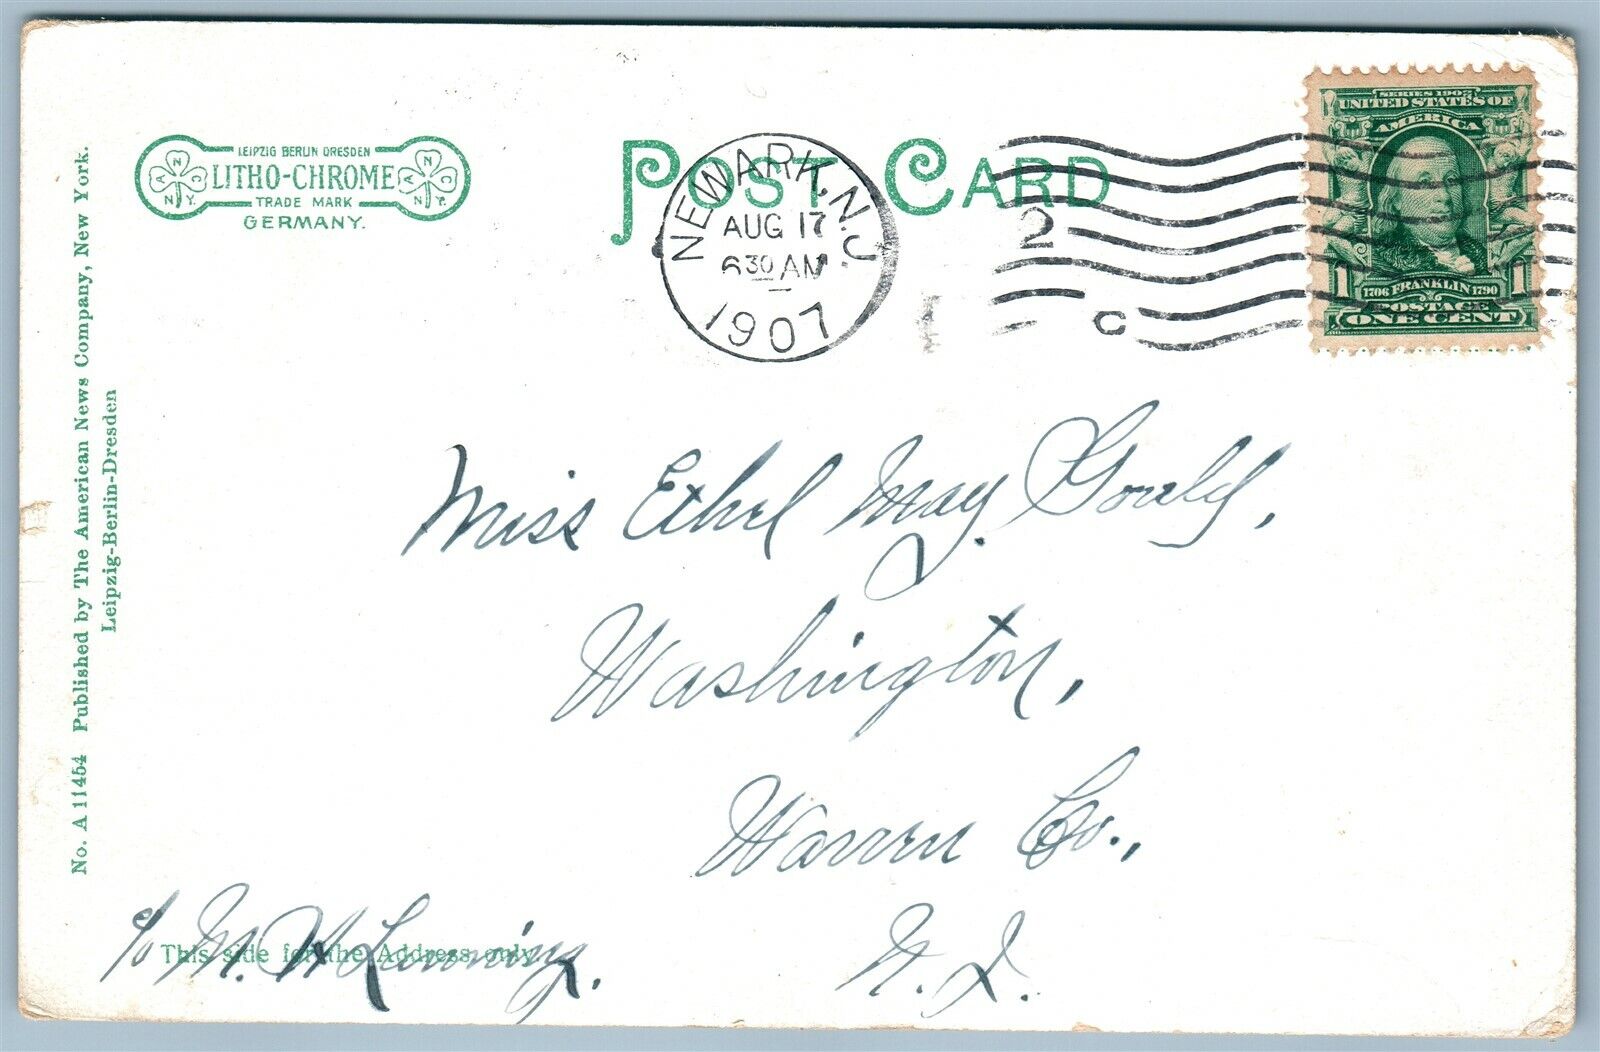 LEIPZIG BERLIN DRESDEN
LITHO-CHROME
TRADE MARK
GERMANY.
A N C N.Y.
A N C N.Y.
POST CARD
NEWARK, N.J.
AUG 17
6 30 AM
1907
2
C
SERIES 1902
UNITED STATES OF
AMERICA
1 1
1706 FRANKLIN 1790
POSTAGE
ONE CENT
No. A 11454 Published by The American News Company, New York.
Leipzig-Berlin-Dresden
Miss Ethel May Gould,
Washington,
Warren Co.,
N. J.
c/o M. W Lanning.
This side for the Address only